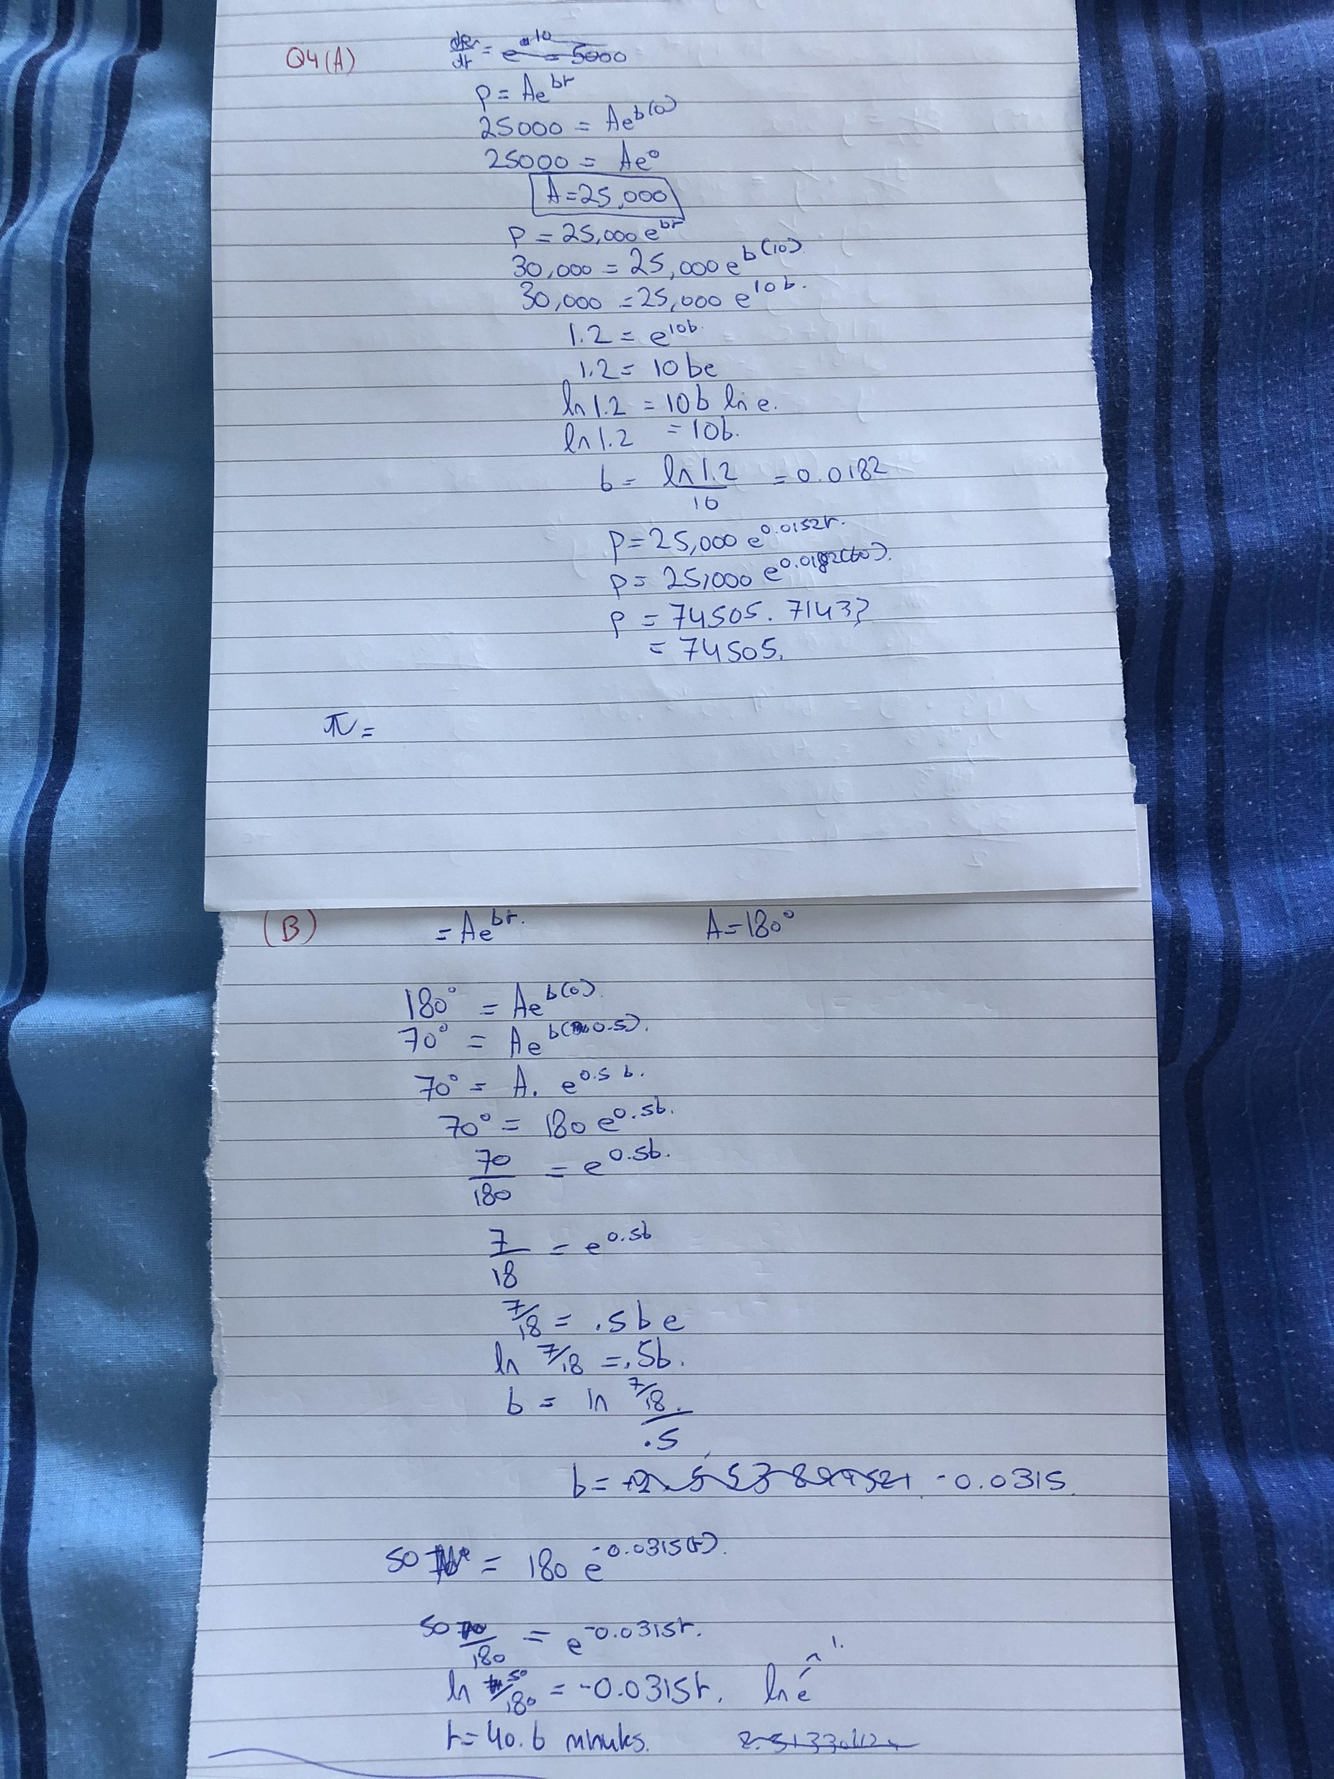 Q4(A)
P = Ae^bt
25000 = Ae^b(0)
25000 = Ae^0
A = 25,000
P = 25,000 e^bt
30,000 = 25,000 e^b(10)
30,000 = 25,000 e^10b.
1.2 = e^10b.
1.2 = 10be
ln 1.2 = 10b ln e.
ln 1.2 = 10b.
b = ln 1.2 / 10 = 0.0182
P = 25,000 e^0.0152t.
P = 25,000 e^0.0182(60).
P = 74505.
= 74505.
π =
(B) = Ae^bt. A = 180°
180° = Ae^b(0).
70° = Ae^b(0.5).
70° = A. e^0.5 b.
70° = 180 e^0.5b.
70/180 = e^0.5b.
7/18 = e^0.5b
7/18 = .5be
ln 7/18 = .5b.
b = ln 7/18. / .5
b = -0.0315.
50 = 180 e^-0.0315(t).
50/180 = e^-0.0315t.
ln 50/180 = -0.0315t. ln e 1.
t = 40.6 minutes.